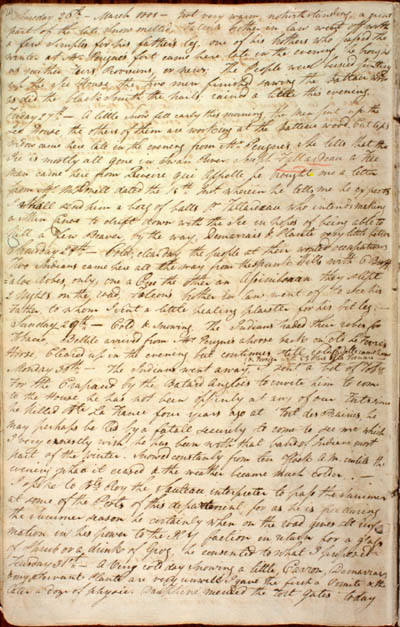 Thursday 26th March 1801 - Not very warm, notwithstanding, a great
part of the late snow melted. Falcon's brother in law went off with
a few simples for his fathers leg, one of his brothers who passed the
winter at Mr Peugnes fort came here late in the evening, he brought
us neither Peers Provisions, or news. The People were busied in
the Ice House. The two men finished sawing the Batteau
the Blacksmith the nails, rained a little this evening.
Friday 27th - A little snow fell early this morning, the men finished the
Ice House the others of them are working at the Batteau wood.
widow came here late in the evening from Mr Peugnes. She tells that the
Ice is mostly all gone in Swan River. Joseph Tallaideau a free
man came here from Riviere qui Appelle he brought me a letter
from Mr McDonell dated the 15th Inst wherein he tells me he expects
I shall send him a keg of balls &c Tallaideau who intends making
a skin Canoe to drift down with the Ice in hopes of being able to
kill a few Beaver by the way. Demarrais & Plante very little better
Saturday 28th - Cold, cloudy the people at their wonted occupations
two Indians came here all the way from the
a Cree the other an Assiniboian they slept
2 Nights on the road, Falcons brother in law went off to see his
father, to whom I sent a little healing plaister for his bit leg.
Sunday 29th - Cold & Snowing. The Indians traded their robes for
Tobacco. Belhumeur arrived from Mr Peugnes whose wife is on old Le Foret's
Horse, Cleared up in the evening but continues
Monday 30th - The Indians went away, I sent a bit of Tob:
for the Crapaud by the Batard Anglois to invite him to come
to the House he has not been openly at any of our Forts since
he killed Bte La France four years ago at Fort des Prairies, he
may perhaps be led by a fatall security to come to see me which
I very earnestly wish, he has been with that band of Indians most
part of the Winter. Snowed constantly from ten O'Clock A.M. untill the
evening when it ceased & the weather became much colder.
I spoke to Bte Roy the Sauteau interpreter to pass the summer
at some of the Posts of this department, for as he is free during
the summer season he certainly when on the road gives all infor-
mation in his power to the X Y faction in return for a glass
of shrub or a drink of Grog, he consented to what I proposed
Tuesday 31st - A Very cold day Snowing a little, Perron, Demarrais
& my servant Plante are very unwell I gave the first a Vomit & the
later a dose of physic. Dauphine mended the Fort Gates today